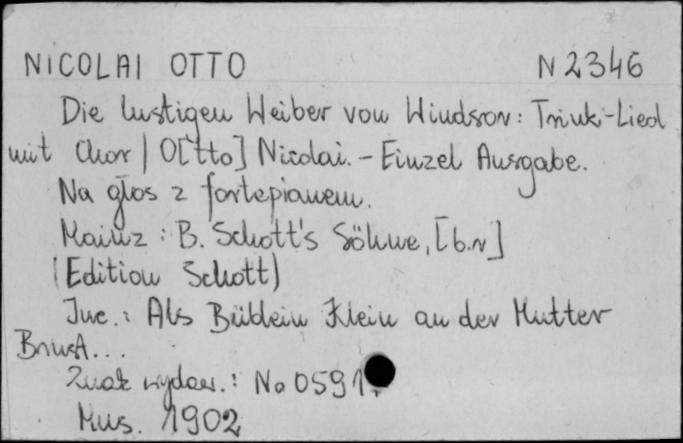 NICOLAI OTTO N 2346
Die lustigen Weiber von Windsor: Trink-Lied
mit Chor / O[tto] Nicolai. - Einzel Ausgabe.
Na głos z fortepianem.
Mainz : B. Schott's Söhne, [b.r]
(Edition Schott)
Inc.: Als Büblein klein an der Mutter
Brust...
Znak wydaw.: No 0591.
Mus. 1902